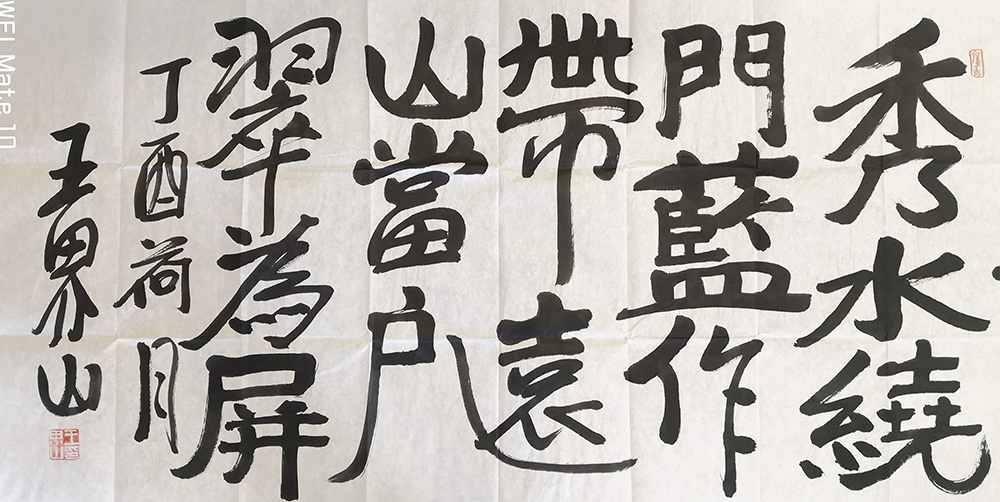 秀水繞
門藍作
帶遠
山當戶
翠為屏
丁酉荷月
王界山
WEI Mate 10